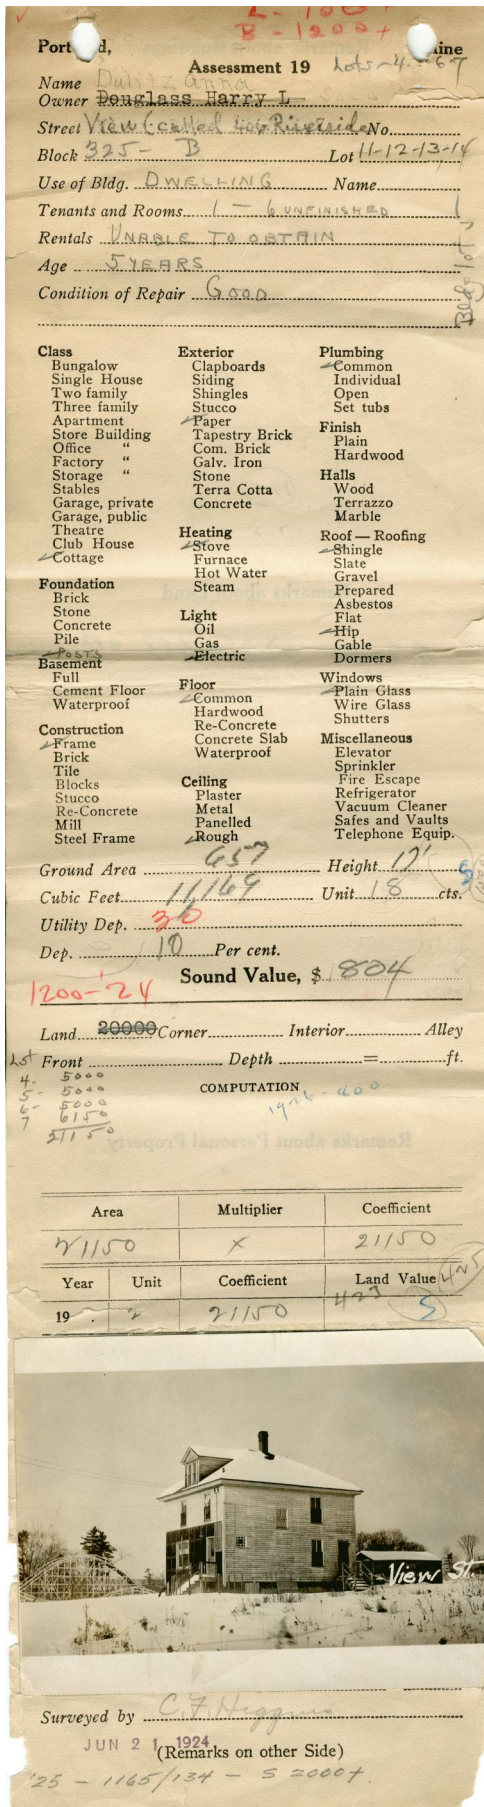 L - 100+
B - 1200+
Portland, Maine
Assessment 19
Lots-4-5-67
Name Dulitz Anna
Owner Douglass Harry L
Street View (called 406 Riverside No.
Block 325- B Lot 11-12-13-14
Use of Bldg. DWELLING Name
Tenants and Rooms 1 - 6 UNFINISHED
Rentals UNABLE TO OBTAIN
Age 5 YEARS
Condition of Repair GOOD
Bldg lot
Class
Bungalow
Single House
Two family
Three family
Apartment
Store Building
Office "
Factory "
Storage "
Stables
Garage, private
Garage, public
Theatre
Club House
Cottage
Foundation
Brick
Stone
Concrete
Pile
POSTS
Basement
Full
Cement Floor
Waterproof
Construction
Frame
Brick
Tile
Blocks
Stucco
Re-Concrete
Mill
Steel Frame
Exterior
Clapboards
Siding
Shingles
Stucco
Paper
Tapestry Brick
Com. Brick
Galv. Iron
Stone
Terra Cotta
Concrete
Heating
Stove
Furnace
Hot Water
Steam
Light
Oil
Gas
Electric
Floor
Common
Hardwood
Re-Concrete
Concrete Slab
Waterproof
Ceiling
Plaster
Metal
Panelled
Rough
Plumbing
Common
Individual
Open
Set tubs
Finish
Plain
Hardwood
Halls
Wood
Terrazzo
Marble
Roof — Roofing
Shingle
Slate
Gravel
Prepared
Asbestos
Flat
Hip
Gable
Dormers
Windows
Plain Glass
Wire Glass
Shutters
Miscellaneous
Elevator
Sprinkler
Fire Escape
Refrigerator
Vacuum Cleaner
Safes and Vaults
Telephone Equip.
Ground Area 657 Height 17'
Cubic Feet 11,169 Unit 18 cts.
Utility Dep. 30
Dep. 10 Per cent.
Sound Value, $ 804
1200-'24
Land 20000 Corner Interior Alley
Front Depth = ft.
Lot
4- 5000
5- 5000
6- 5000
7 6150
21150
COMPUTATION
1926-400
Area Multiplier Coefficient
21150 x 21150
Year Unit Coefficient Land Value
425
19 . 2 21150 423
View St.
Surveyed by C. F. Higgins
JUN 21 1924
(Remarks on other Side)
'25 - 1165/134 - S 2000+